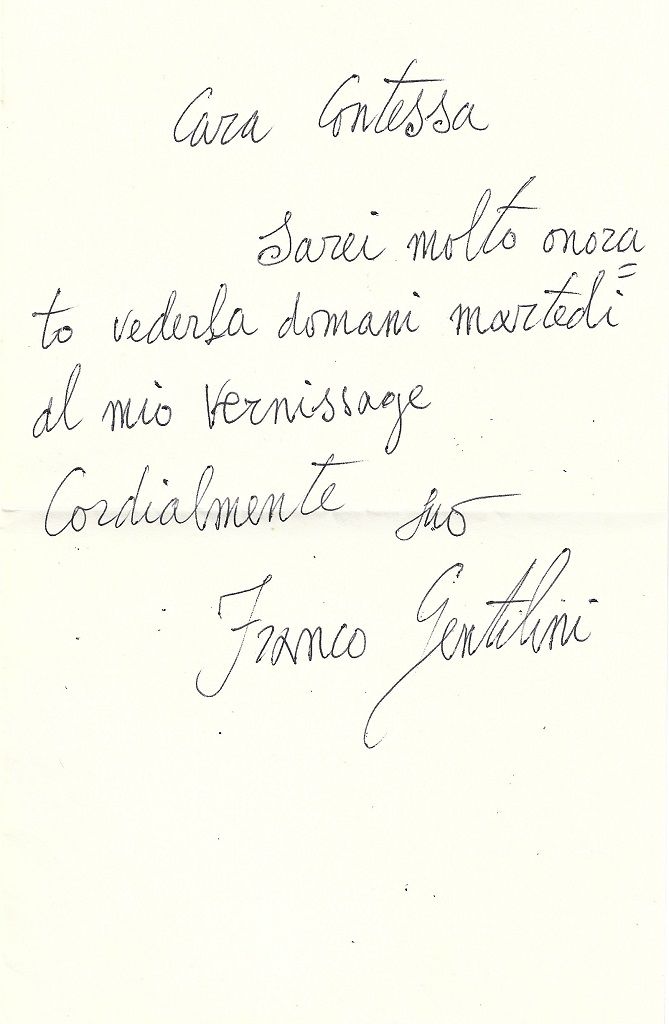 Cara Contessa
Sarei molto onora=
to vederla domani martedì
al mio vernissage
Cordialmente suo
Franco Gentilini